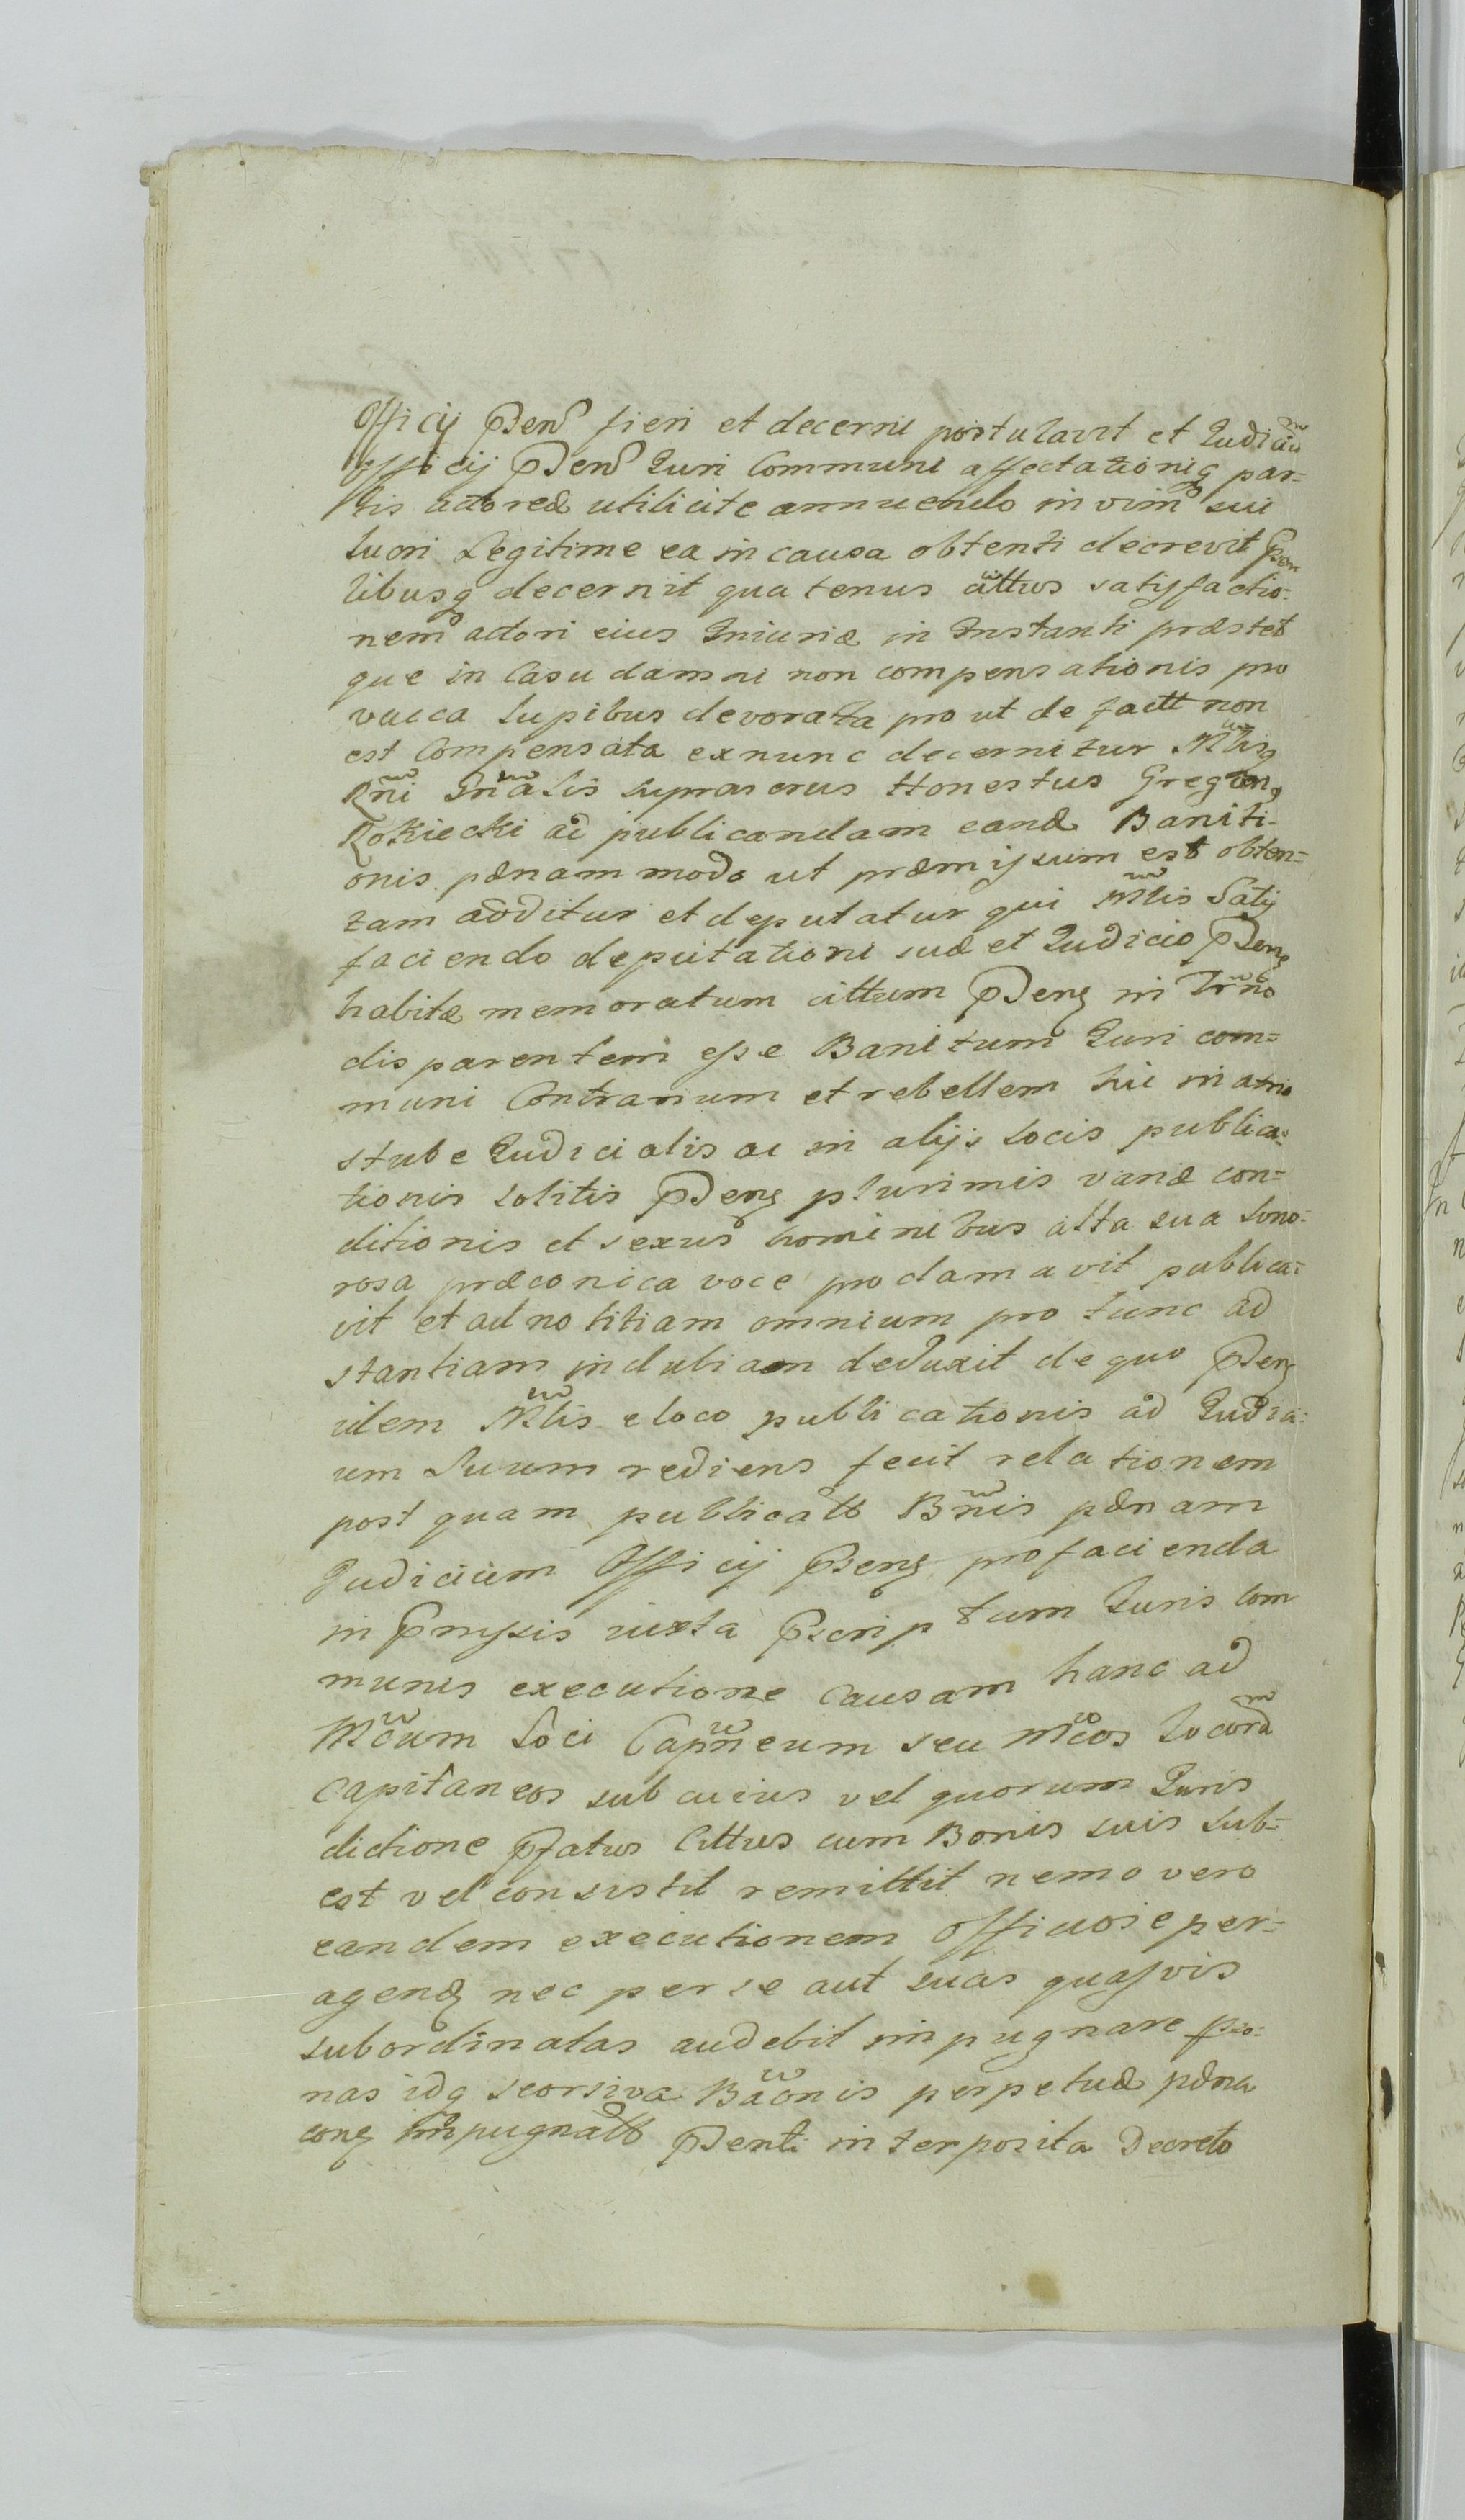 Officij Pden͠ fieri et decerni postulavit et Judiciu͠
officij Pden͠ Juri Communi affectationiq par-
tis actoreæ utilicite annuendo in vim sui
lucri Legitime ea in causa obtenti decrevit Psen
tibusq decernit quatenus cittus satisfactio-
nem actori eius Iniuriæ in Instanti præstet
que in Casu damni non compensationis pro
vacca lupibus devorata prout de factt non
est Compensata exnunc decernitur Mlis
Rñi Gñalis suprascrus Honestus Gregor
Rokiecki ad publicandam eand Baniti-
onis pænam modo ut præmissum est obten-
tam additur et deputatur qui Mlis Satis
faciendo deputationi suæ et Judicio Pden
habitæ memoratum cittum Pden in trño
disparentem esse Banitum Juri com-
muni Contrarium et rebellem hic in atrio
stube Judicialis ac in alijs locis publica-
tionis solitis Pden plurimis variæ con-
ditionis et sexus hominibus alta sua sono-
rosa præconica voce proclamavit publica-
vit et ad notitiam omnium pro tunc ad
stantiam indubiam deduxit de quo Pden
idem Mlis e loco publicationis ad Judici-
um Suum rediens fecit relationem
post quam publicatt Bñis pænam
Judicium Officij Psen pro facienda
in Pmissis iuxta Pscriptum Juris com
munis executione causam hanc ad
Mcum Loci Capñeum seu Mcos locor͠
Capitaneos sub cuius vel quorum Juris
dictione Pfatus Cittus cum Bonis suis sub-
est vel consistit remittit nemo vero
eandem executionem officiose per-
agend nec per se aut suas quasvis
subordinatas audebit impugnare pso-
nas idq seorsiva Bãonis perpetuæ pæna
con impugnatt Pdenti interposita Decreto